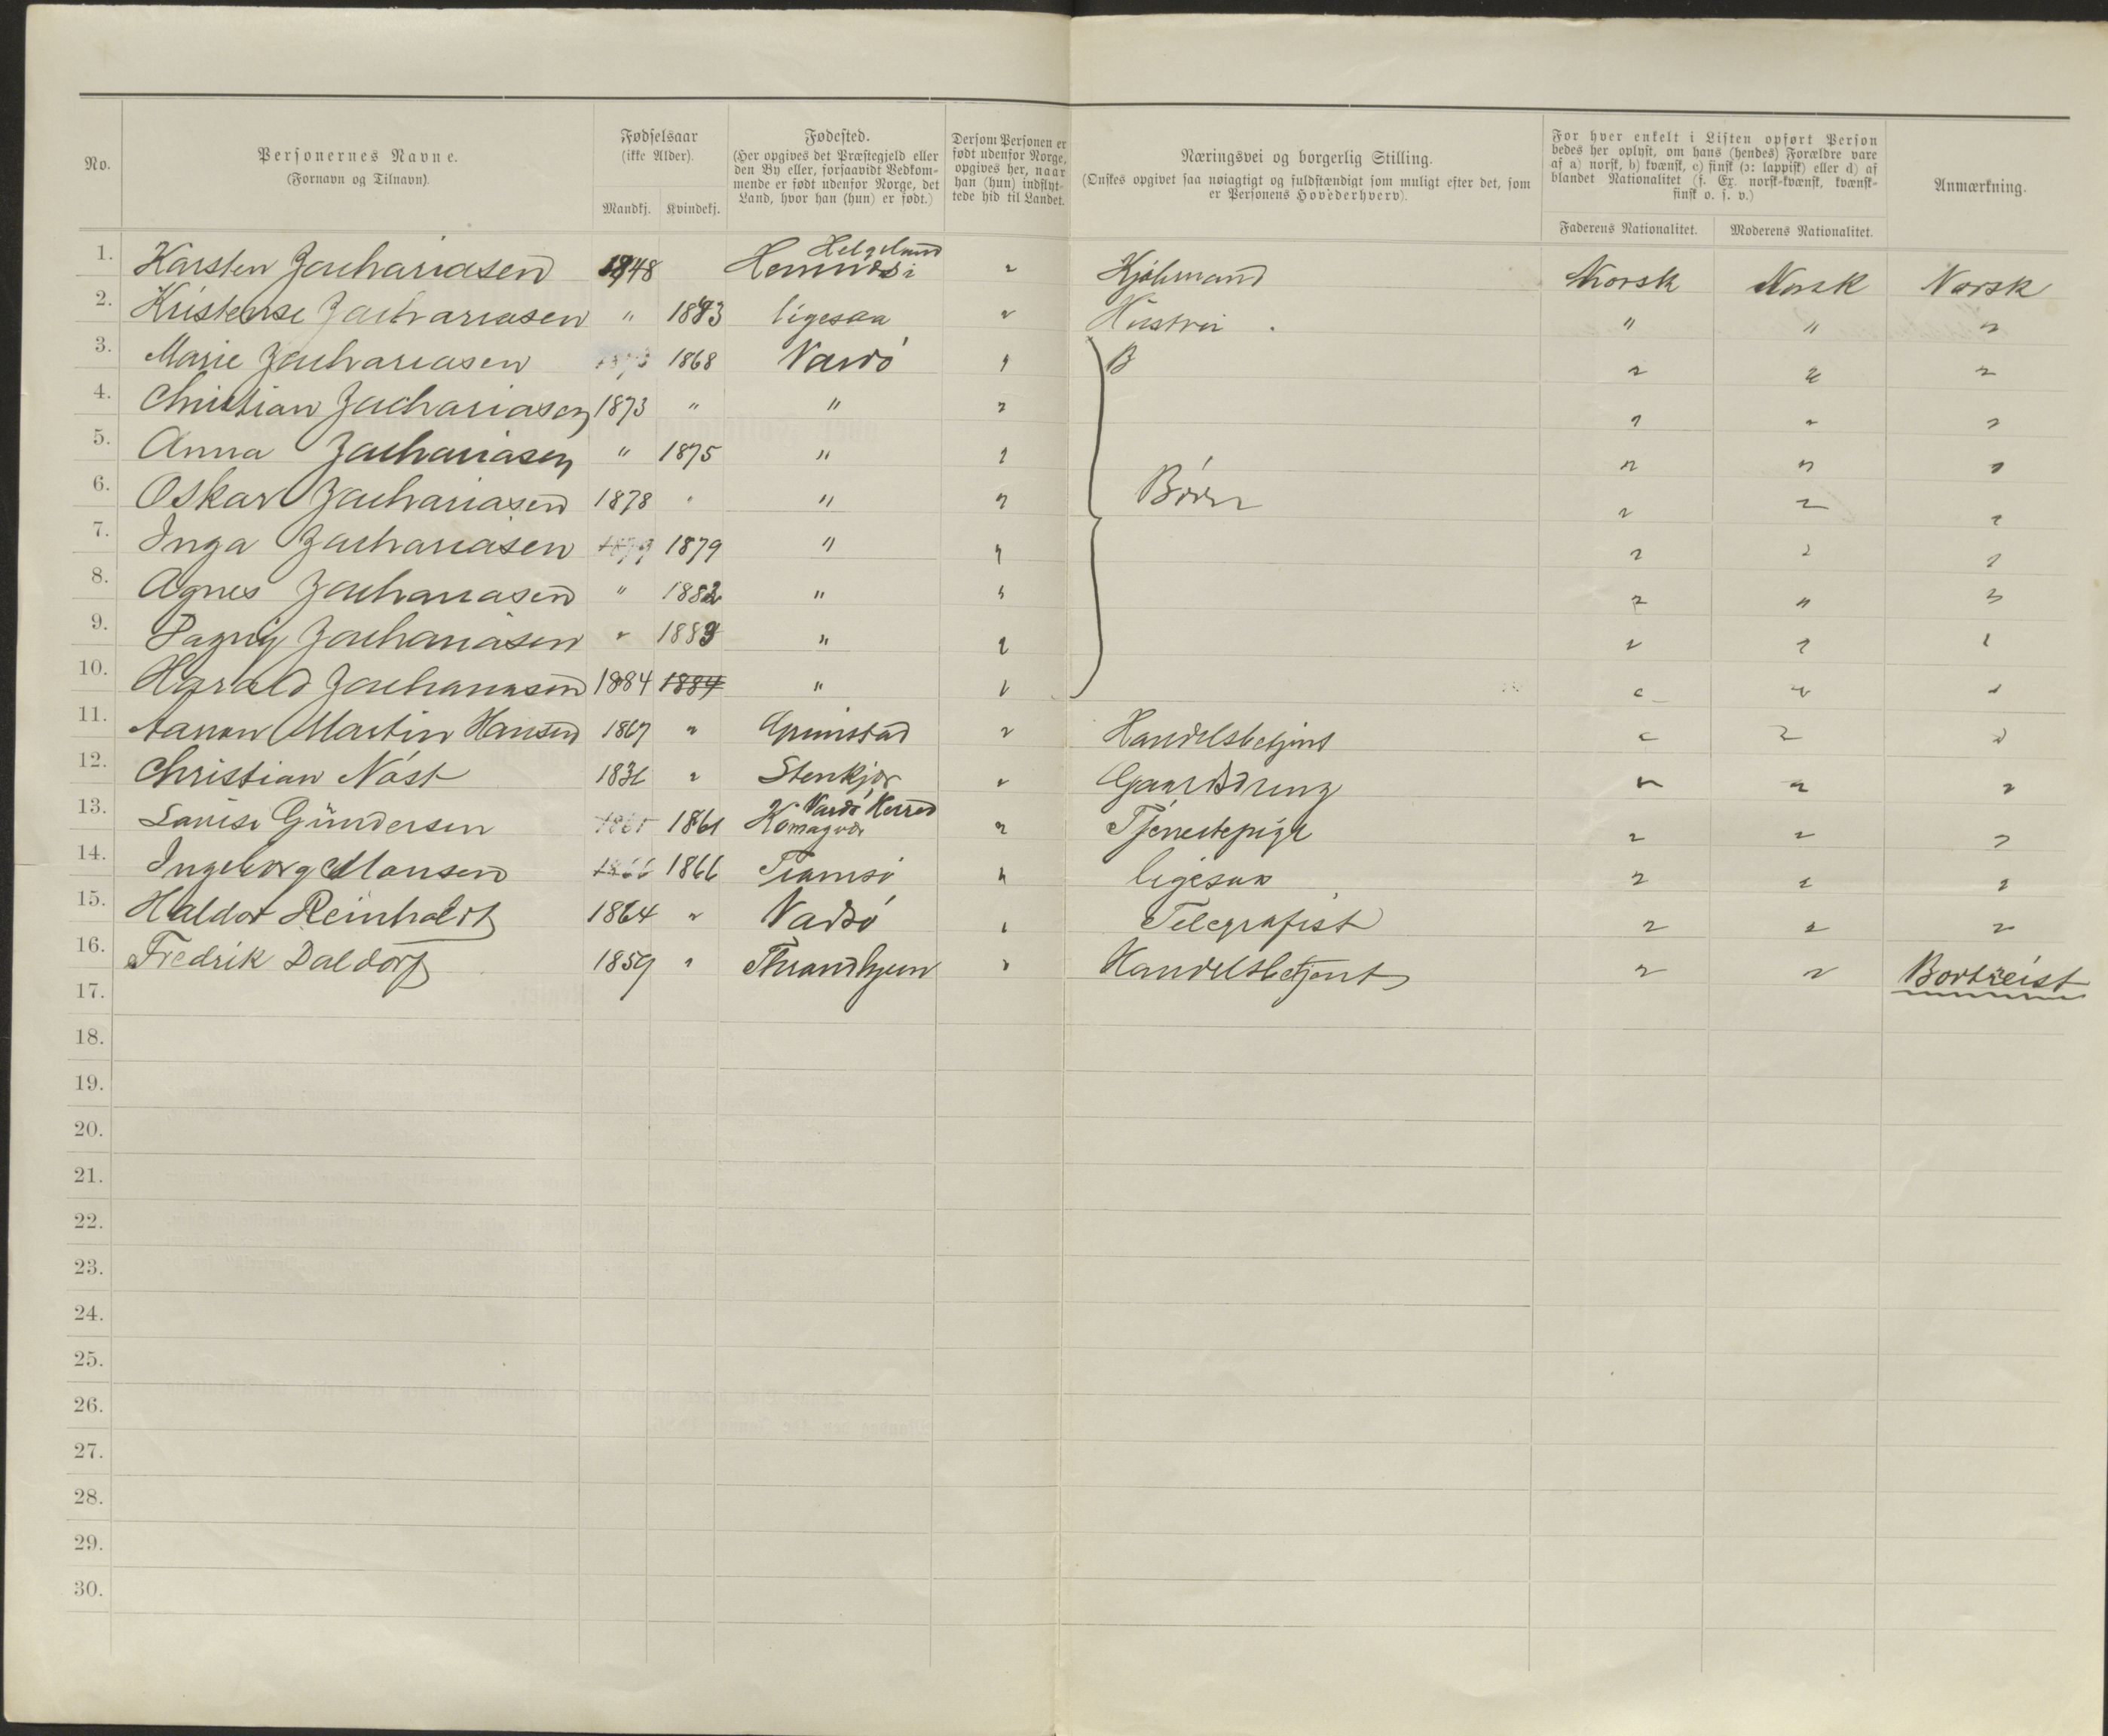 No.
Personernes Navne.
(Fornavn og Tilnavn).
Fødselsaar
(ikke Alder).
Mandkj. Kvindekj.
Fødested.
(Her opgives det Præstegjeld eller
den By eller, forsaavidt Vedkom-
mende er født udenfor Norge, det
Land, hvor han (hun) er født.)
Dersom Personen er
født udenfor Norge,
opgives her, naar
han (hun) indflyt-
tede hid til Landet.
Næringsvei og borgerlig Stilling.
(Ønskes opgivet saa nøiagtigt og fuldstændigt som muligt efter det, som
er Personens Hovederhverv).
For hver enkelt i Listen opført Person
bedes her oplyst, om hans (hendes) Forældre vare
af a) norsk, b) kvænsk, c) finsk (ɔ: lappisk) eller d) af
blandet Nationalitet (f. Ex. norsk-kvænsk, kvænsk-
finsk o. s. v.)
Faderens Nationalitet. Moderens Nationalitet.
Anmærkning.
Helgeland
1. Karsten Zachariasen 1848 " Kjøbmand Norsk Norsk Norsk
2. Kristense Zachariasen " 1843 ligesaa " Hustru " " "
3. Marie Zachariasen 1873 1868 Vardö " B " " "
4. Christian Zachariasen 1873 " " " " " "
5. Anna Zachariasen " 1875 " " " " "
6. Oskar Zachariasen 1878 " " " Börn " " "
7. Inga Zachariasen 1879 1879 " " " " "
8. Agnes Zachariasen " 1882 " " " " "
9. Dagny Zachariasen " 1883 " " " " "
10. Harald Zachariasen 1884 1884 " " " " "
11. Aanon Martin Hansen 1867 " Grimstad " Handelsbetjent " " "
12. Christian Näst 1836 " Stenkjær " Gaardsdreng " " "
Vardö Herred
13. Lovise Gündersen 1861 1861 Komagvær " Tjenestepige " " "
14. Ingeborg Monsen 1866 1866 Tromsö " ligesaa " " "
15. Haldor Reinholdt 1864 " Vadsö " Telegrafist " " "
16. Fredrik Daldorf 1859 " Throndhjem " Handelsbetjent " " Bortreist
17.
18.
19.
20.
21.
22.
23.
24.
25.
26.
27.
28.
29.
30.